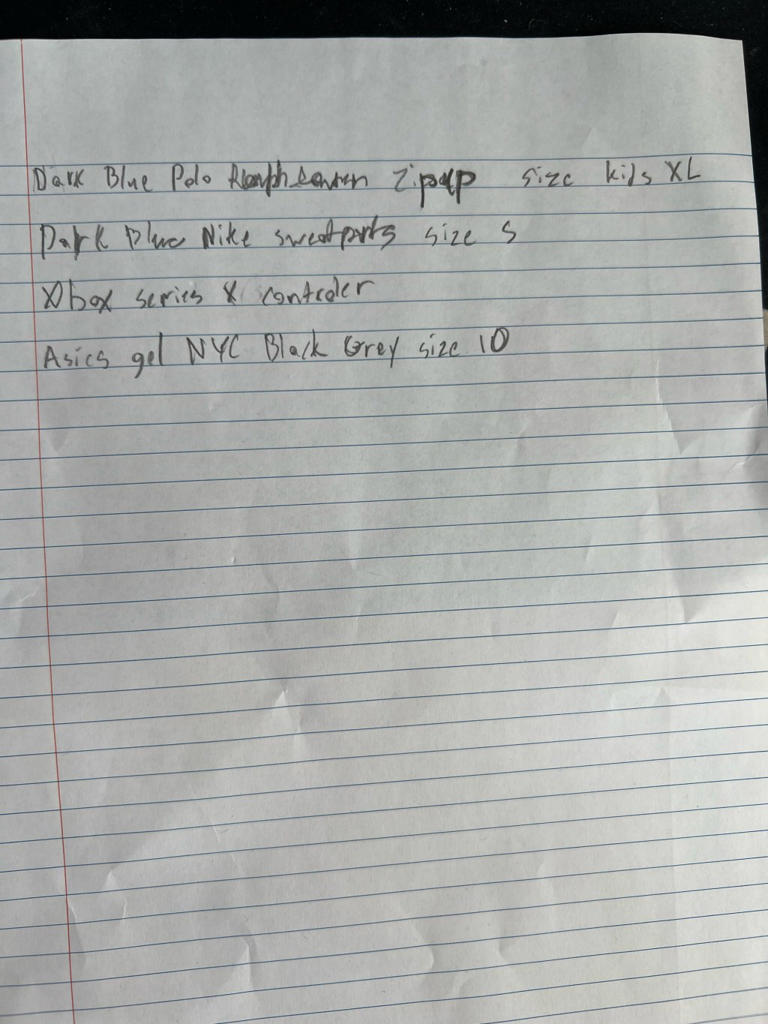 Dark Blue Polo Zipup size kids XL
Dark blue Nike sweatpants size S
Xbox series X controler
Asics gel NYC Black Grey size 10